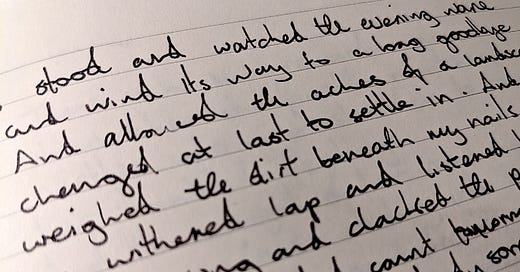 stood and watched the evening wane
and wind its way to a long goodbye
And allowed the aches of a landsca
changed at last to settle in. And
weighed the dirt beneath my nails
withered lap and listened
and clacked the
count